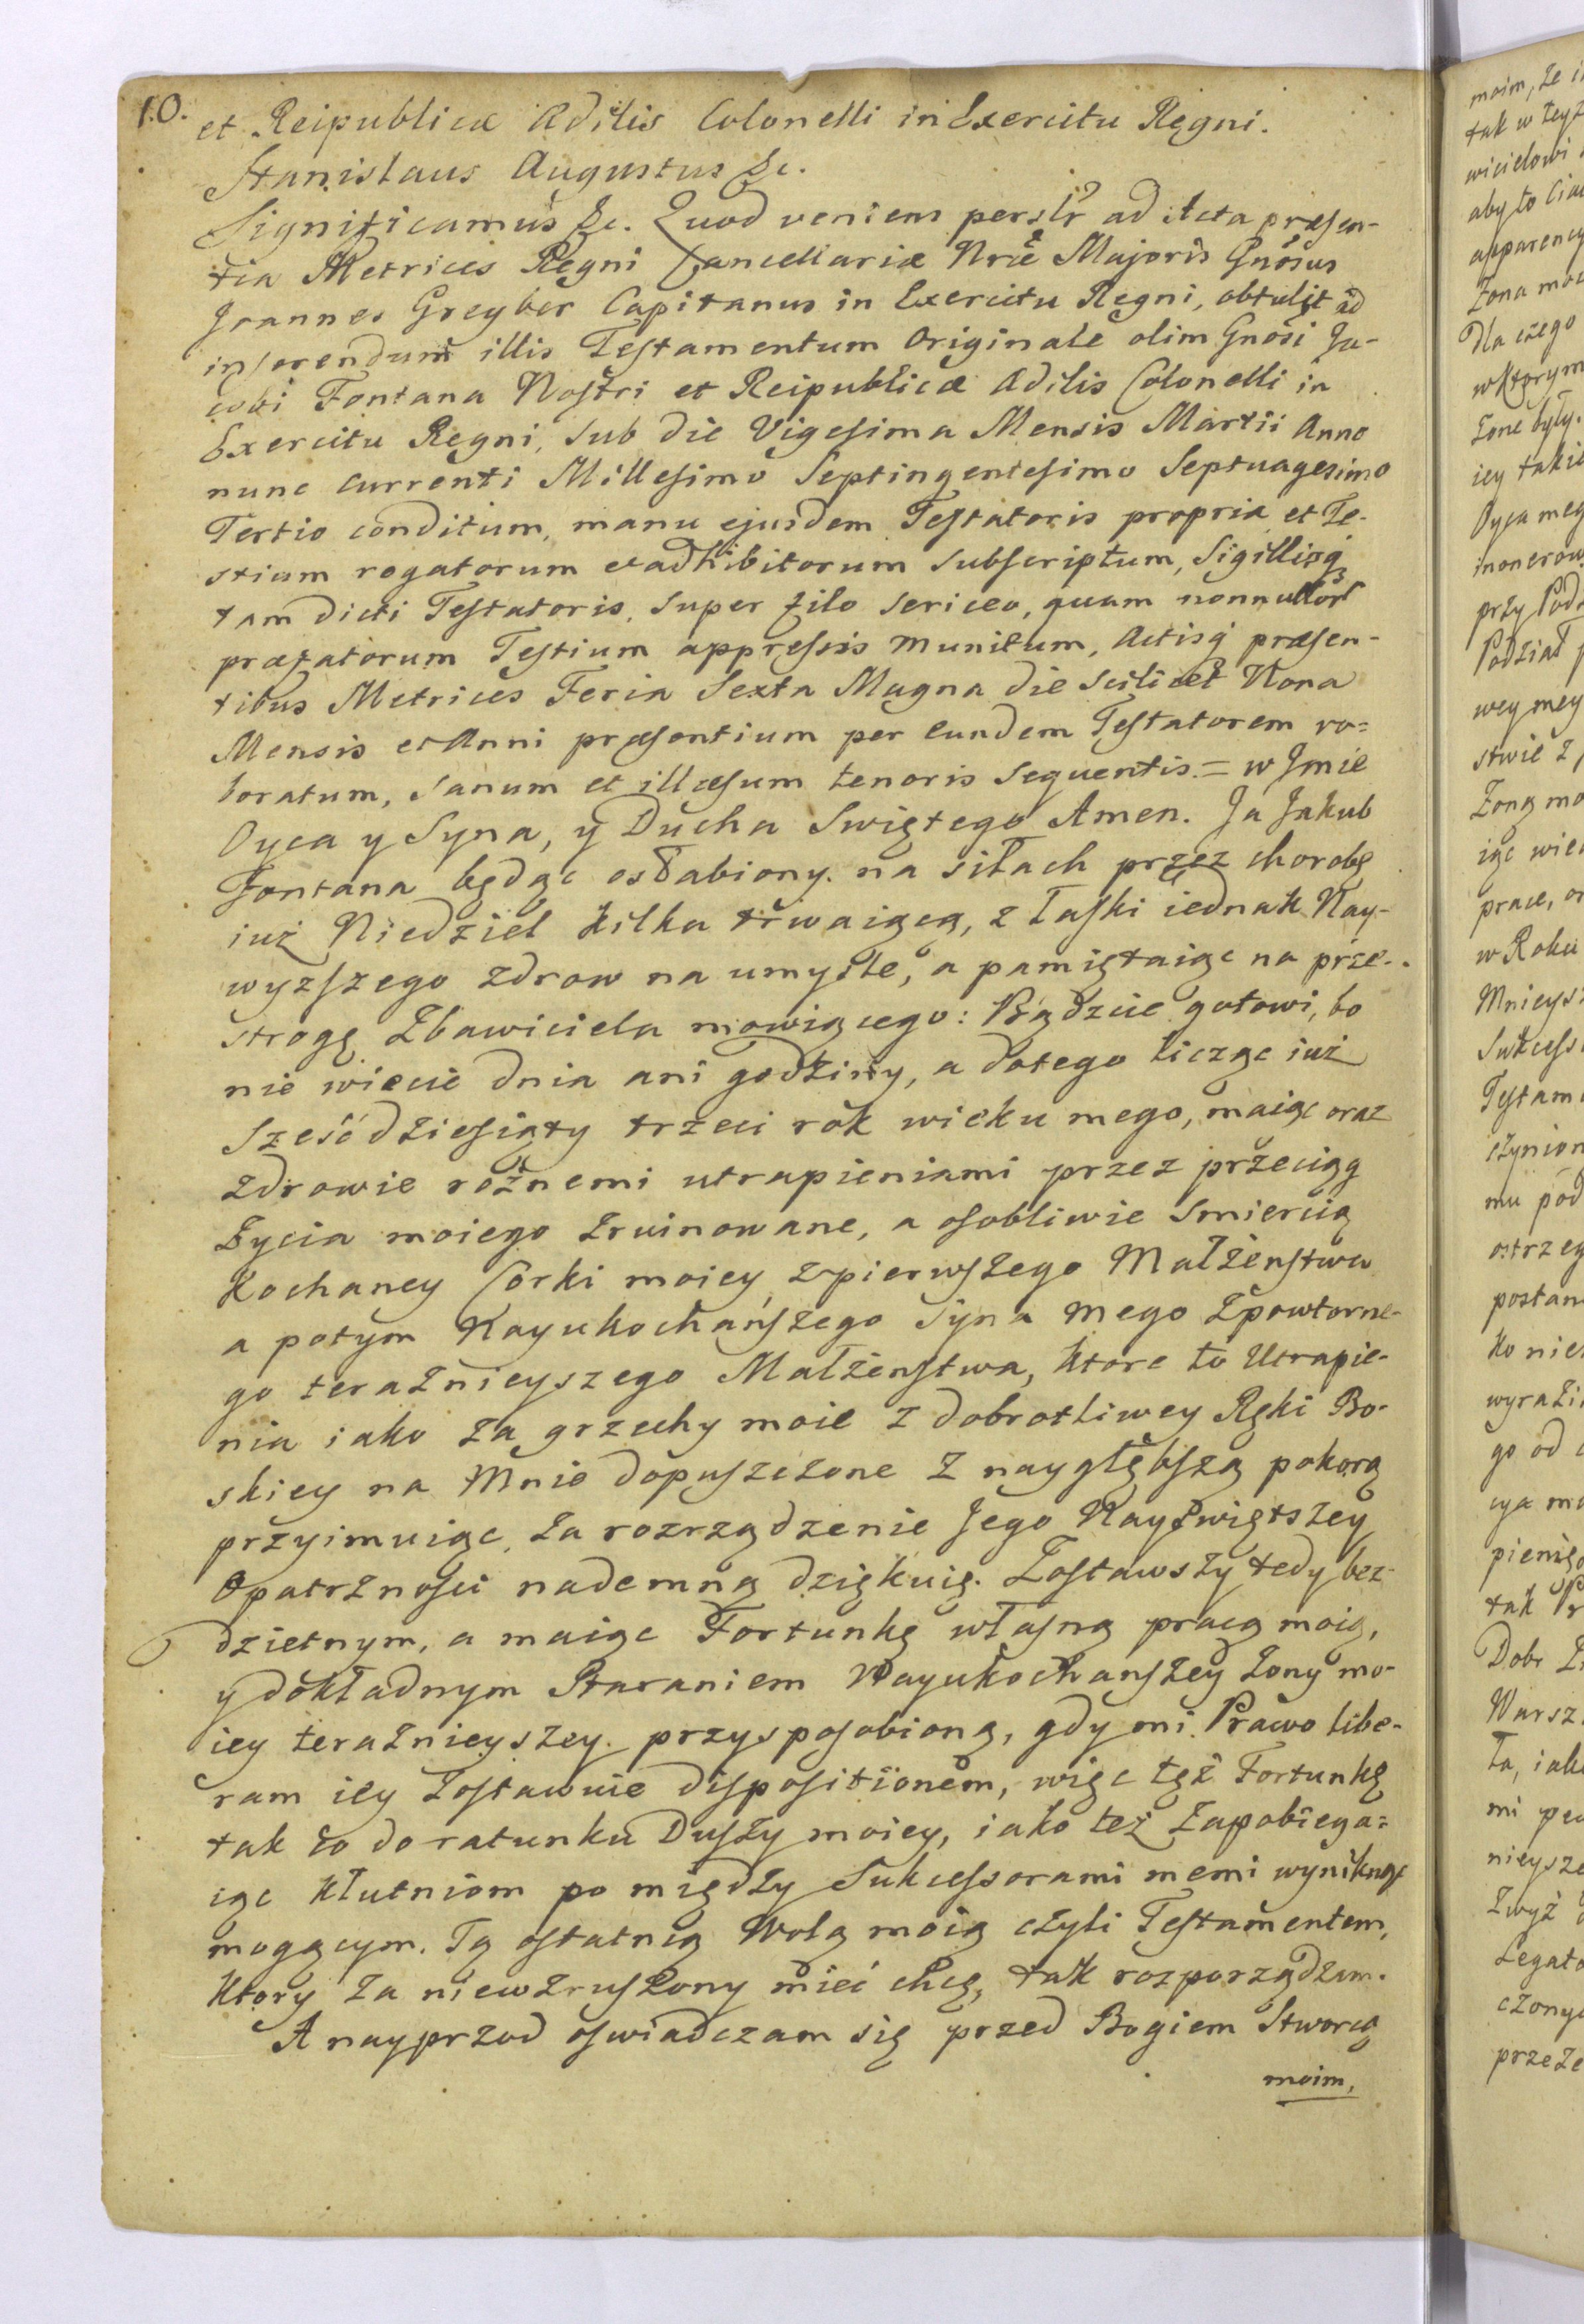 10.
et Reipublicæ Ædilis Colonelli in Exercitu Regni.
Stanislaus Augustus &c.
Significamus &c. Quod veniens perslr ad Acta præsen-
tia Metrices Regni Cancellariæ Nræ Majoris Gnosus
Joannes Greyber Capitanus in Exercitu Regni, obtulit ad
inserendum illis Testamentum Originale olim Gnosi Ja-
cobi Fontana Nostri et Reipublicæ Ædilis Colonelli in
Exercitu Regni, sub die Vigesima Mensis Martii Anno
nunc currenti Millesimo Septingentesimo Septuagesimo
Tertio conditum, manu ejusdem Testatoris propria et Te-
stium rogatorum et adhibitorum subscriptum, Sigillisq
tam dicti Testatoris, super filo sericeo, quam nonnullor
præfatorum Testium appressis munitum, Actisq præsen-
tibus Metrices Feria Sexta Magna die scilicet Nona
Mensis et Anni præsentium per eundem Testatorem ro=
boratum, sanum et illæsum tenoris sequentis = w Jmie
Oyca y Syna, y Ducha Swiętego Amen. Ja Jakub
Fontana będąc osłabiony na siłach przez chorobę
iuż Niedziel kilka trwaiącą, z łaski iednak Nay-
wyzszego zdrow na umysle, a pamiętaiąc na prze-
strogę Zbawiciela mowiącego: Bądzcie gotowi, bo
nie wiecie dnia ani godziny, a dotego licząc iuż
Sześćdziesiąty trzeci rok wieku mego, maiąc oraz
zdrowie roźnemi utrapieniami przez przeciąg
Zycia moiego zruinowane, a osobliwie smiercią
Kochaney Corki moiey z pierwszego Małżenstwa
a potym Nayukochańszego Syna mego z powtorne-
go teraznieyszego Małżenstwa, ktore to Utrapie-
nia iako za grzechy moie z dobrotliwey Ręki Bo-
skiey na Mnie dopuszczone z naygłębszą pokorą
przyimuiąc, za rozrządzenie Jego Nayswiętszey
Opatrznosci nademną dziękuię. Zostawszy tedy bez-
dzietnym, a maiąc Fortunkę własną pracą moią,
y dokładnym Staraniem Nayukochanszey Zony mo-
iey teraznieyszey przysposobioną, gdy mi Prawo libe-
ram iey zostawuie dispositionem, więc tęż Fortunkę
tak co do ratunku Duszy moiey, iako też zapobiega=
iąc kłutniom pomiędzy Sukcessorami memi wyniknąć
mogącym. Tą ostatnią Wolą moią czyli Testamentem,
ktory za niewzruszony mieć chcę, tak rozporządzam.
A nayprzod oswiadczam się przed Bogiem Stworcą
moim,